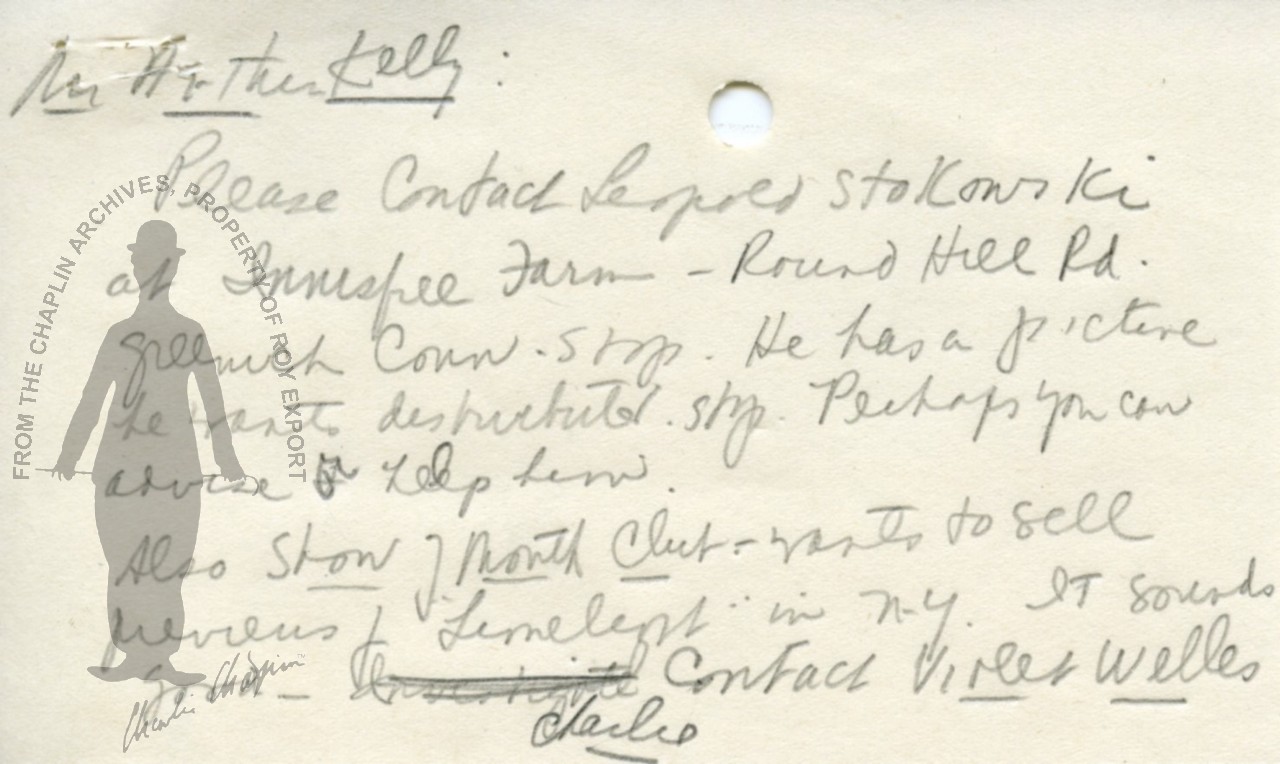 Mr Arthur Kelly :
Please Contact Leopold Stokowski
at Innisfree Farm - Round Hill Rd.
Greenwich Conn. stop. He has a picture
he wants distributed. stop. Perhaps you can
advise or help him.
Also Show of Month Club - wants to sell
previews of "Limelight" in N-Y. It sounds
good - Investigate Contact Violet Welles
Charlie
FROM THE CHAPLIN ARCHIVES, PROPERTY OF ROY EXPORT
Charlie Chaplin